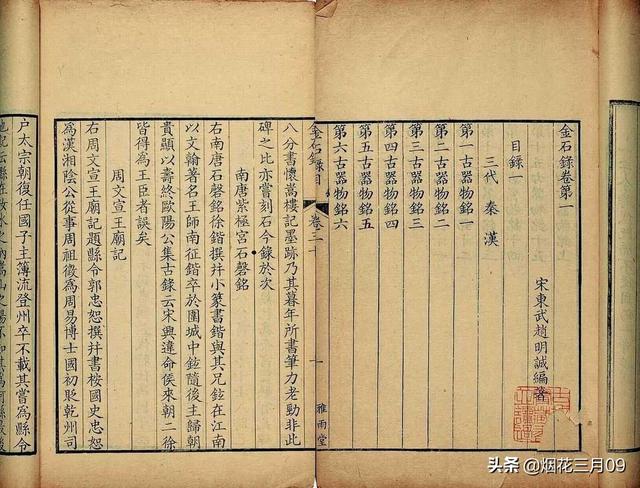 金石錄卷第一
宋東武趙明誠編著
目錄一
三代 秦 漢
第一古器物銘一
第二古器物銘二
第三古器物銘三
第四古器物銘四
第五古器物銘五
第六古器物銘六
金石錄目
一
雅雨堂
卷三十
八分書懷嵩樓記墨跡乃其暮年所書筆力老勁非此
碑之比亦嘗刻石今錄於次
南唐紫極宮石磬銘
右南唐石磬銘徐鍇撰并小篆書鍇與其兄鉉在江南
以文翰著名王師南征鍇卒於圍城中鉉隨後主歸朝
貴顯以壽終歐陽公集古錄云宋興違命侯來朝二徐
皆得為王臣者誤矣
周文宣王廟記
右周文宣王廟記題縣令郭忠恕撰并書桉國史忠恕
為漢湘陰公從事周祖徵為周易博士國初貶乾州司
户太宗朝復任國子主簿流登州卒不載其嘗為縣令
头条 @烟花三月09